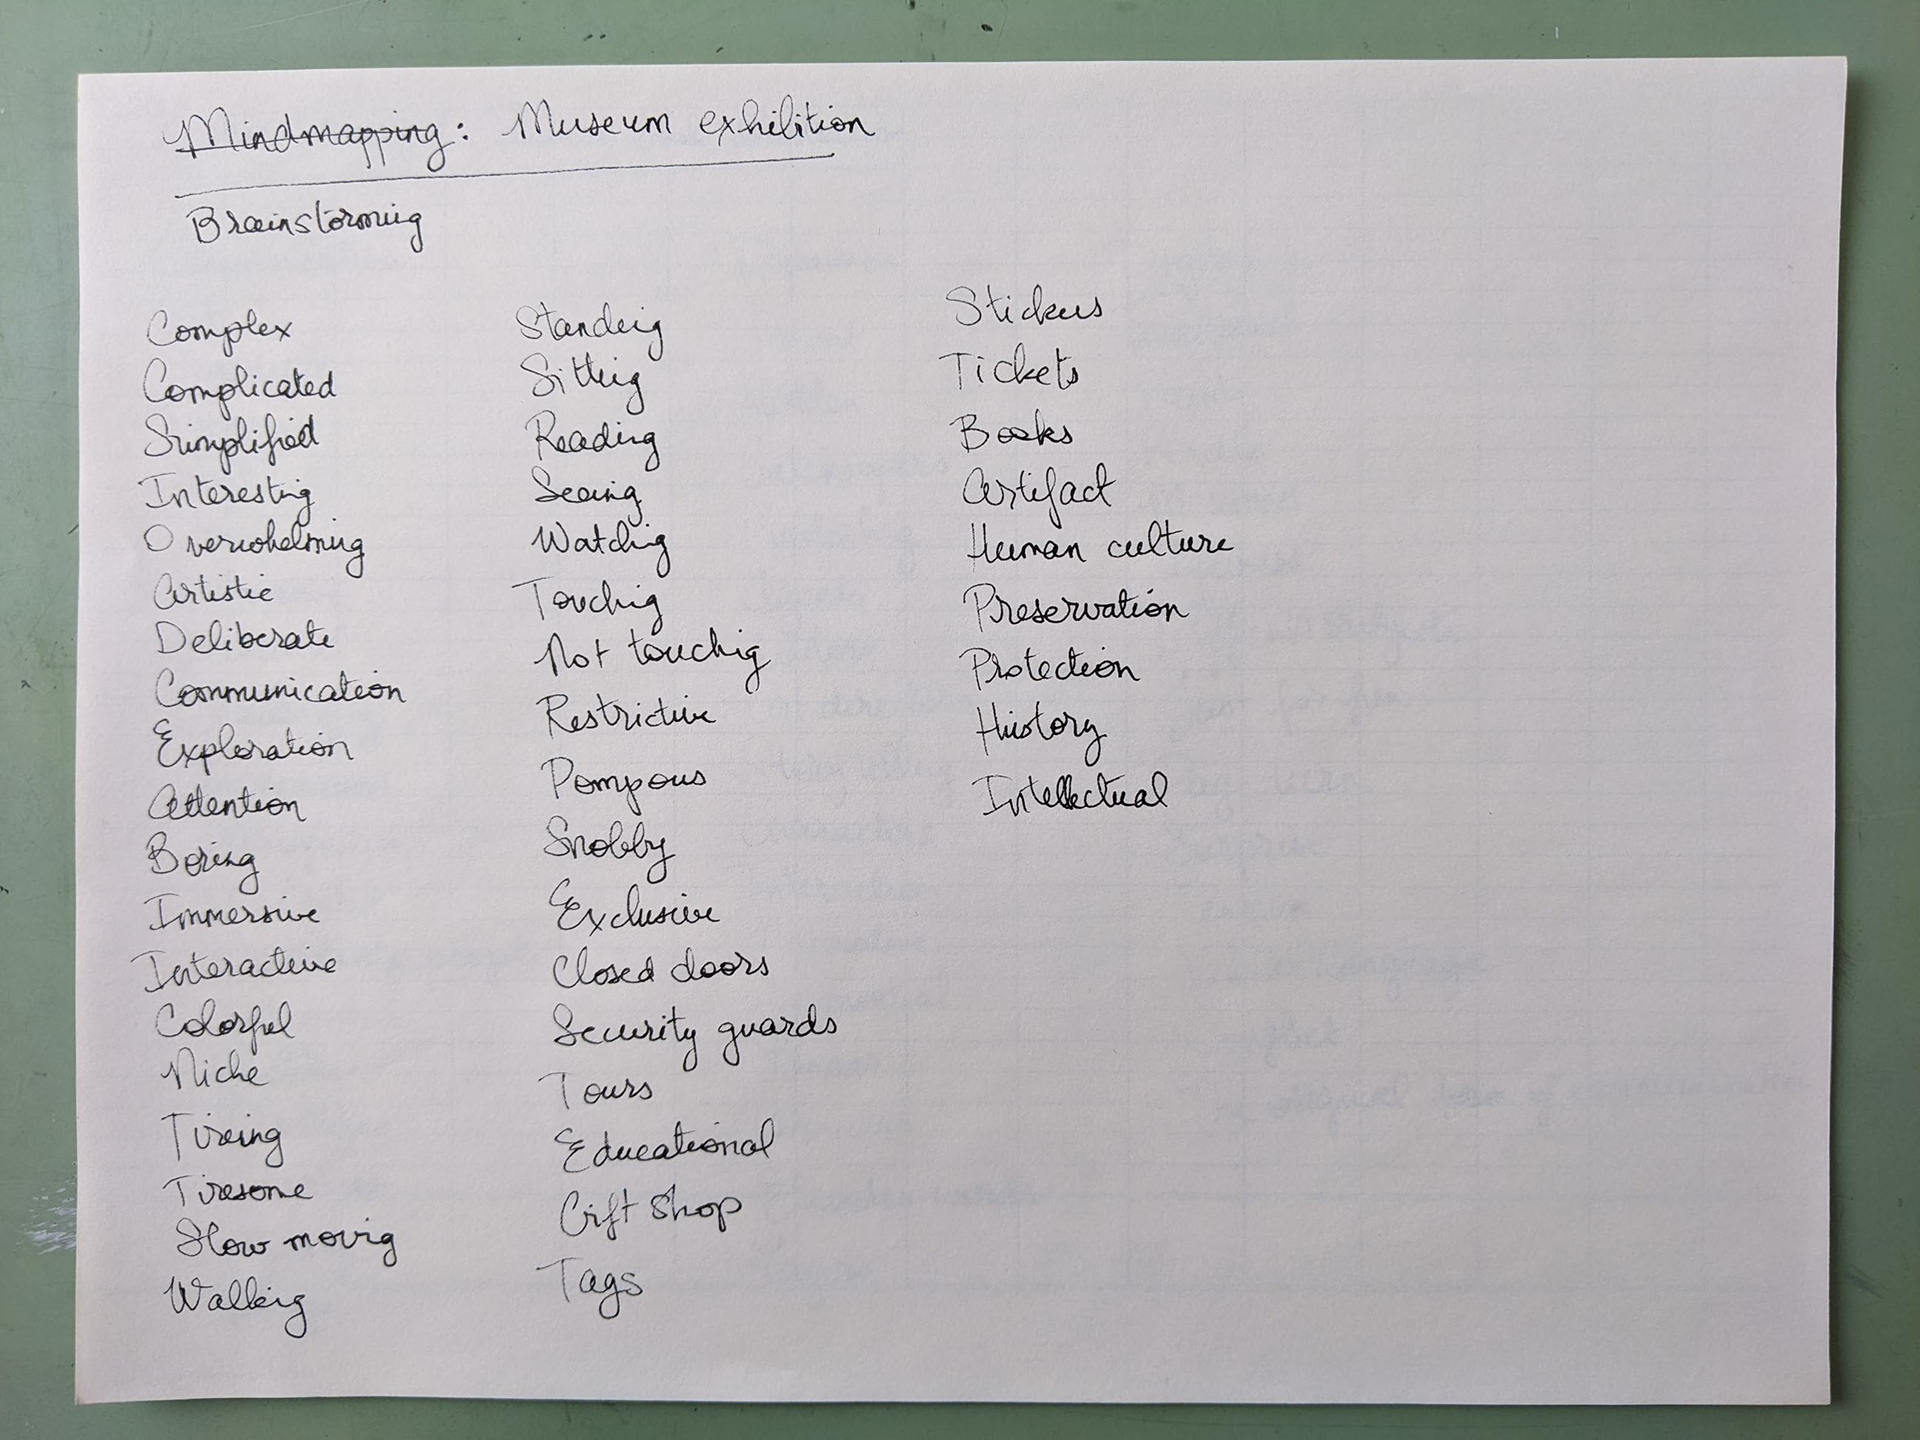 Mindmapping: Museum exhibition
Brainstorming
Complex
Complicated
Simplified
Interesting
Overwhelming
Artistic
Deliberate
Communication
Exploration
Attention
Boring
Immersive
Interactive
Colorful
Niche
Tireing
Tiresome
Slow moving
Walking
Standing
Sitting
Reading
Seeing
Watching
Touching
Not touching
Restrictive
Pompous
Snobby
Exclusive
Closed doors
Security guards
Tours
Educational
Gift Shop
Tags
Stickers
Tickets
Books
Artifact
Human culture
Preservation
Protection
History
Intellectual